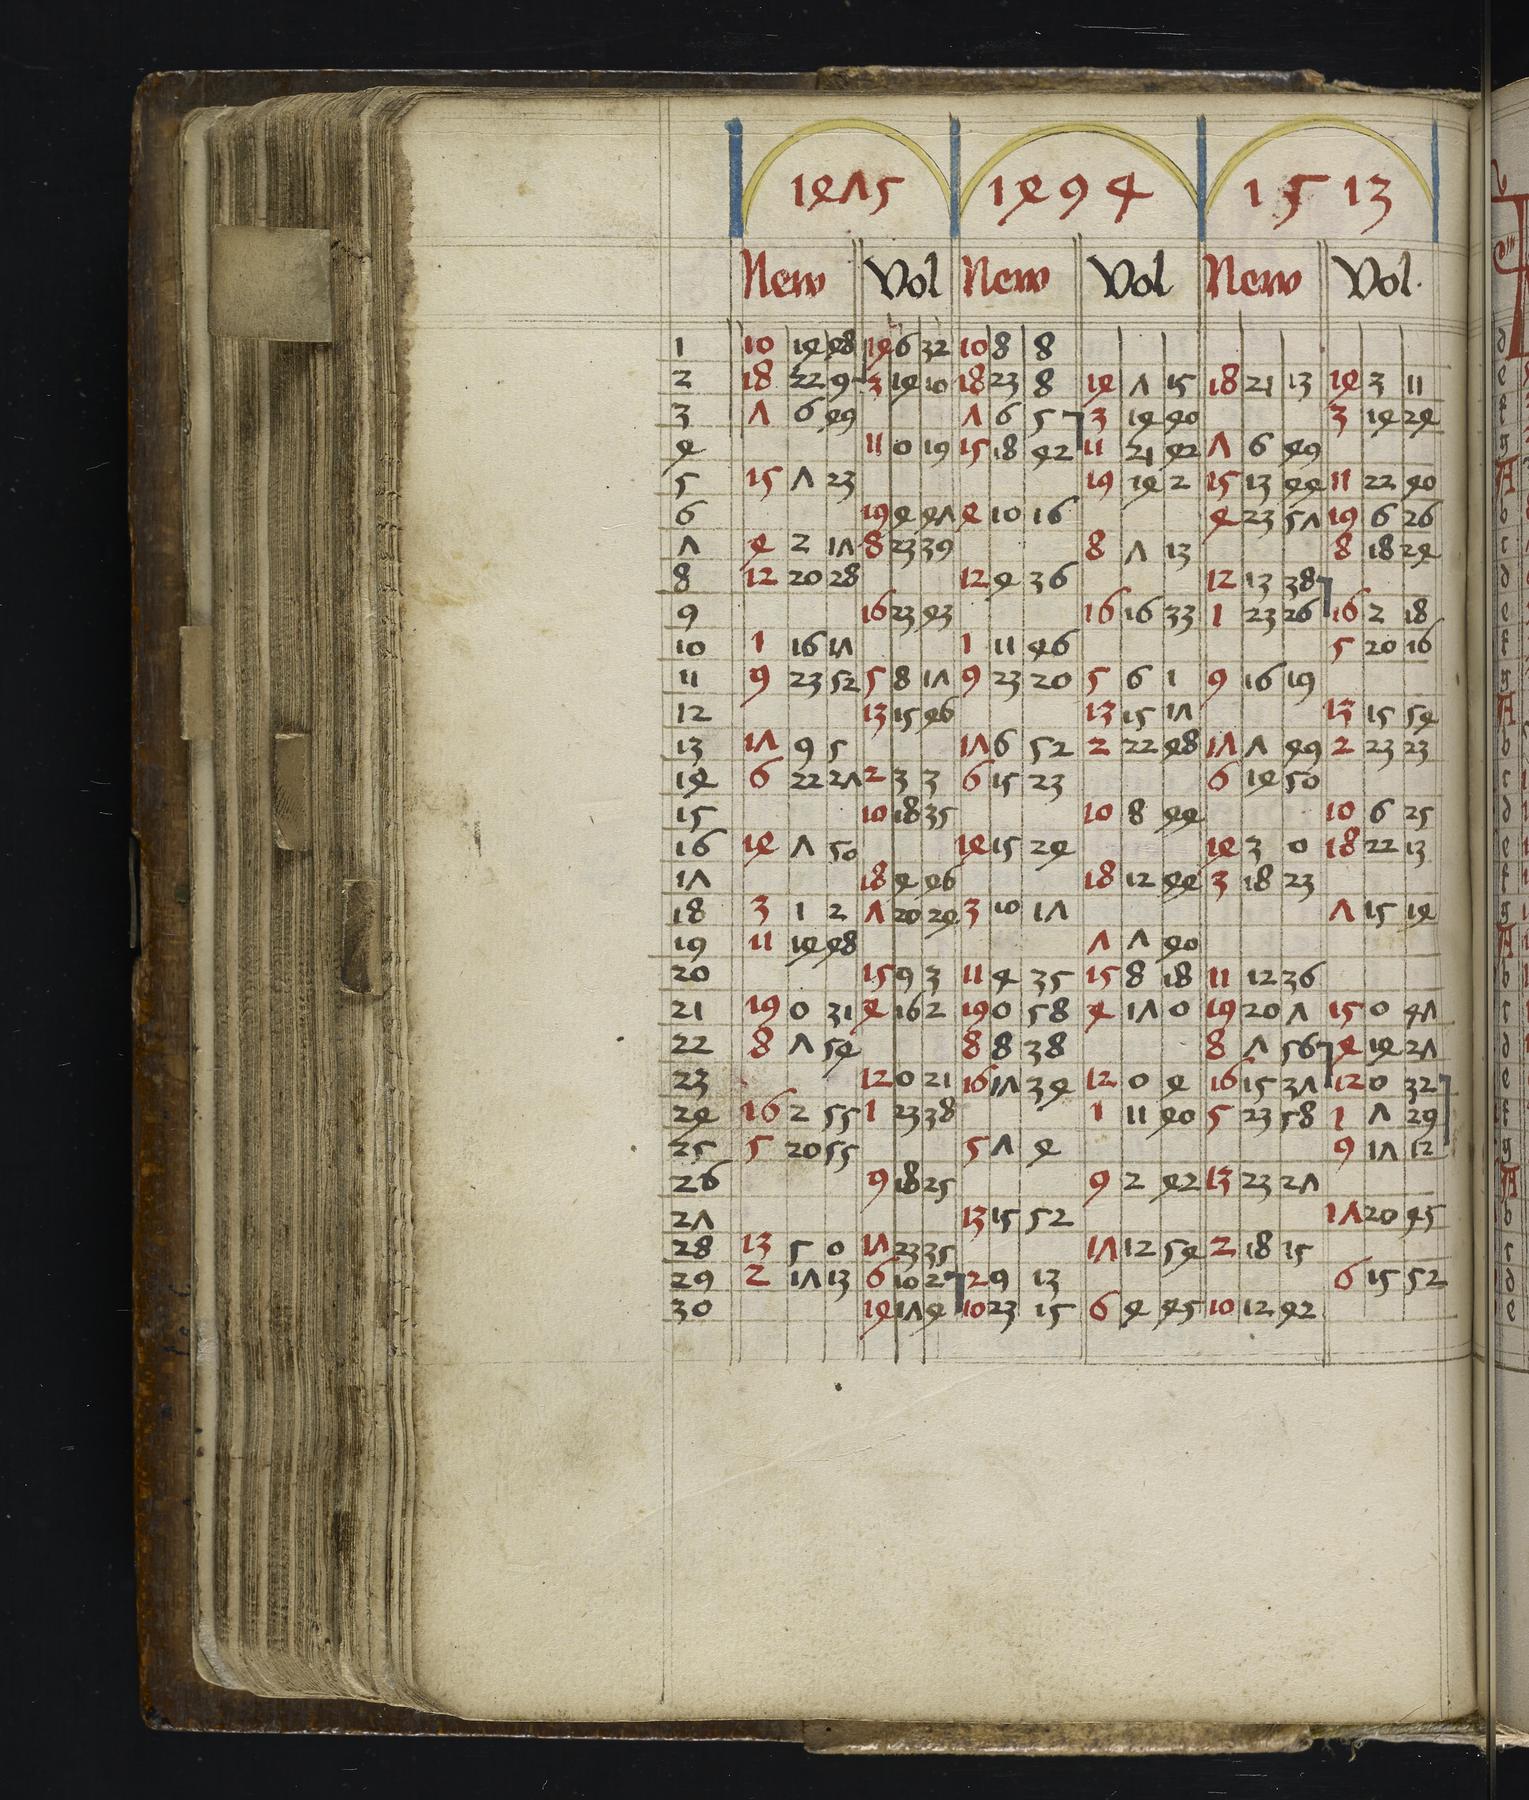 1475 1494 1513
New Vol New Vol New Vol.
1 10 14 48 14 6 32 10 8 8
2 18 22 9 3 14 10 18 23 8 14 7 15 18 21 13 14 3 11
3 7 6 49 7 6 5 3 14 40 3 14 24
4 11 0 19 15 18 42 11 21 42 7 6 49
5 15 7 23 19 14 2 15 13 44 11 22 40
6 19 4 47 4 10 16 4 23 57 19 6 26
7 4 2 17 8 23 39 8 7 13 8 18 24
8 12 20 28 12 4 36 12 13 38
9 16 23 43 16 16 33 1 23 26 16 2 18
10 1 16 17 1 11 46 5 20 16
11 9 23 52 5 8 17 9 23 20 5 6 1 9 16 19
12 13 15 46 13 15 17 13 15 54
13 17 9 5 17 6 52 2 22 48 17 7 49 2 23 23
14 6 22 27 2 3 3 6 15 23 6 14 50
15 10 18 35 10 8 44 10 6 25
16 14 7 50 14 15 24 14 3 0 18 22 13
17 18 4 46 18 12 44 3 18 23
18 3 1 2 7 20 24 3 10 17 7 15 14
19 11 14 48 7 7 40
20 15 9 3 11 4 35 15 8 18 11 12 36
21 19 0 31 4 16 2 19 0 58 4 17 0 19 20 7 15 0 47
22 8 7 54 8 8 38 8 7 56 4 14 27
23 12 0 21 16 17 34 12 0 4 16 15 37 12 0 32
24 16 2 55 1 23 38 1 11 40 5 23 58 1 7 29
25 5 20 55 5 7 4 9 17 12
26 9 18 25 9 2 42 13 23 27
27 13 15 52 17 20 45
28 13 5 0 17 23 35 17 12 54 2 18 15
29 2 17 13 6 10 2 2 9 13 6 15 52
30 14 17 4 10 23 15 6 4 45 10 12 42